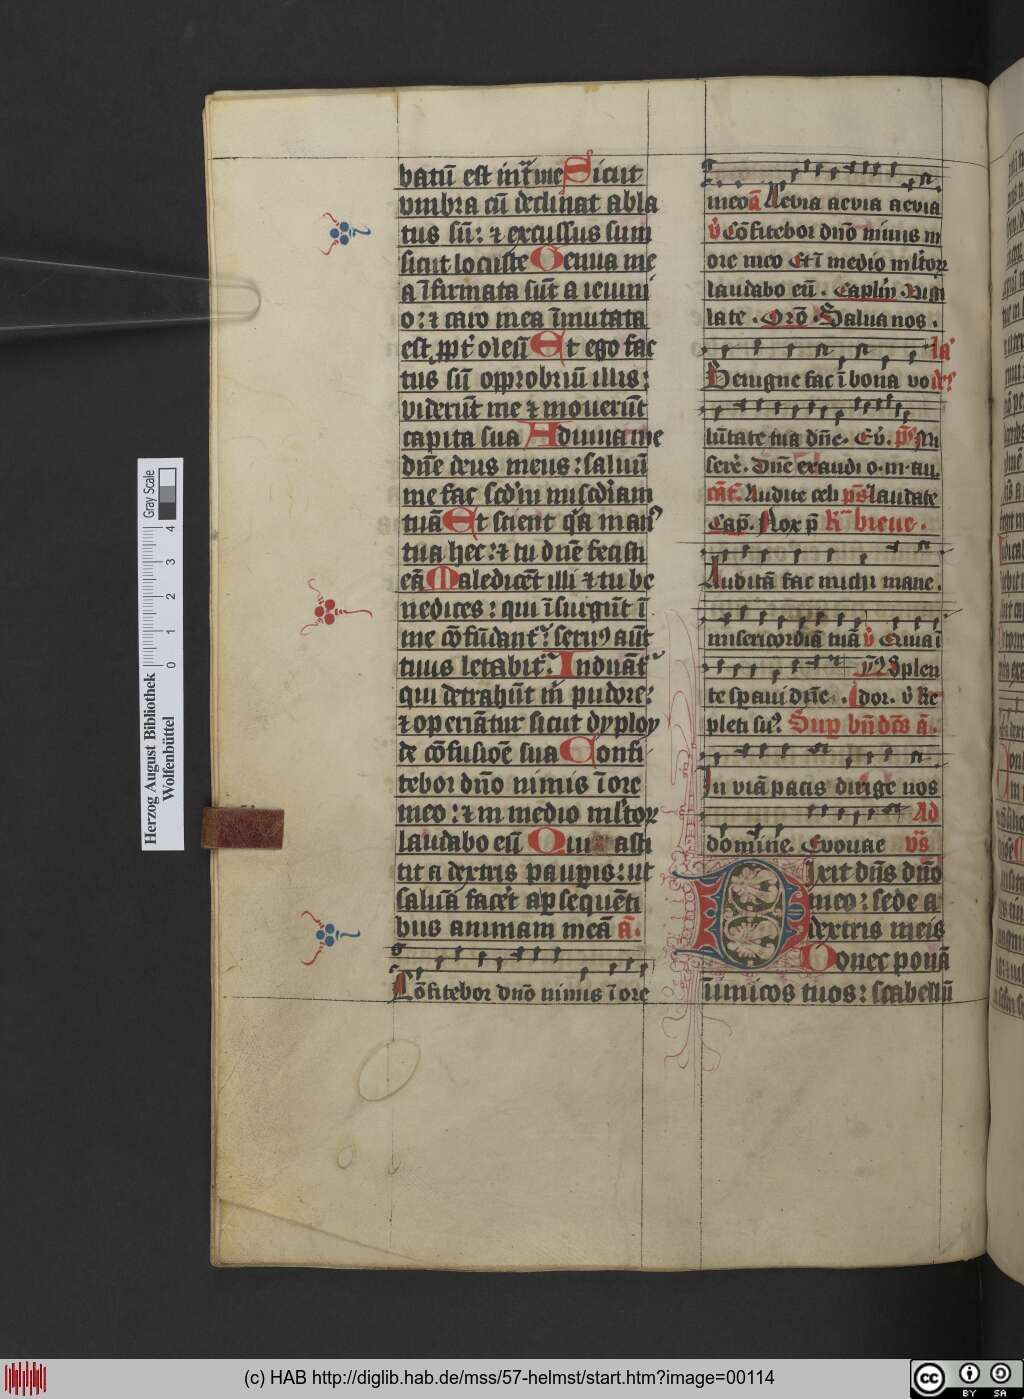 batū est int᷑ me Sicut
vmbra cū declinat abla
tus sū: ⁊ excussus sum
sicut locuste Genua me
a īfirmata sūt a ieiuni
o: ⁊ caro mea īmutata
est ꝓpt᷑ oleū Et ego fac
tus sū opprobriū illis:
viderūt me ⁊ mouerūt
capita sua Adiuua me
dn̄e deus meus: saluū
me fac scd᷑m misc᷑diam
tuā Et scient q᷑a manꝰ
tua hec: ⁊ tu dn̄e fecisti
eā Maledicēt illi ⁊ tu be
nedices: qui īsurgūt ī
me cōfūdant᷑: seruꝰ aūt
tuus letabit᷑. Induāt᷑
qui detrahūt m̄ pudore:
⁊ operiātur sicut dyploy
de cōfusiōe sua Confi
tebor dn̄o nimis ī ore
meo: ⁊ in medio m̄ltoꝝ
laudabo eū Qui asti
tit a dextris paup̲is: ut
saluā facet᷑ a p̲sequēti
bus animam meā a̅.
Cōfitebor dn̄o nimis ī ore
meo a̅ Aevia aevia aevia
v̇ Cōfitebor dn̄o nimis in
ore meo Et ī medio ml̄toꝝ
laudabo eū. Capl᷑m Vigi
late. Orō. Salua nos.
la᷑
Benigne fac ī bona vo des
lūtate tua dn̄e. Ev̇. ps̄ Mi
sere᷑. Dn̄e exaudi o. m. au.
cāt᷑. Audite celi ps̄ laudate
Cap̄. Nox p̄ R̄ breue.
Auditā fac michi mane.
misericordiā tuā v̇ Quia ī
te speraui dn̄e. v̇ Re
pleti suꝰ. Sup̲ bn̄dc̄s a̅.
In viā pacis dirige nos
Ad
domine. Evouae vs̄
Dixit dn̄s dn̄o
meo: sede a
dextris meis
Donec ponā
inimicos tuos: scabellū
Herzog August Bibliothek
Wolfenbüttel
Gray Scale
0 1 2 3 4
(c) HAB http://diglib.hab.de/mss/57-helmst/start.htm?image=00114
cc BY SA